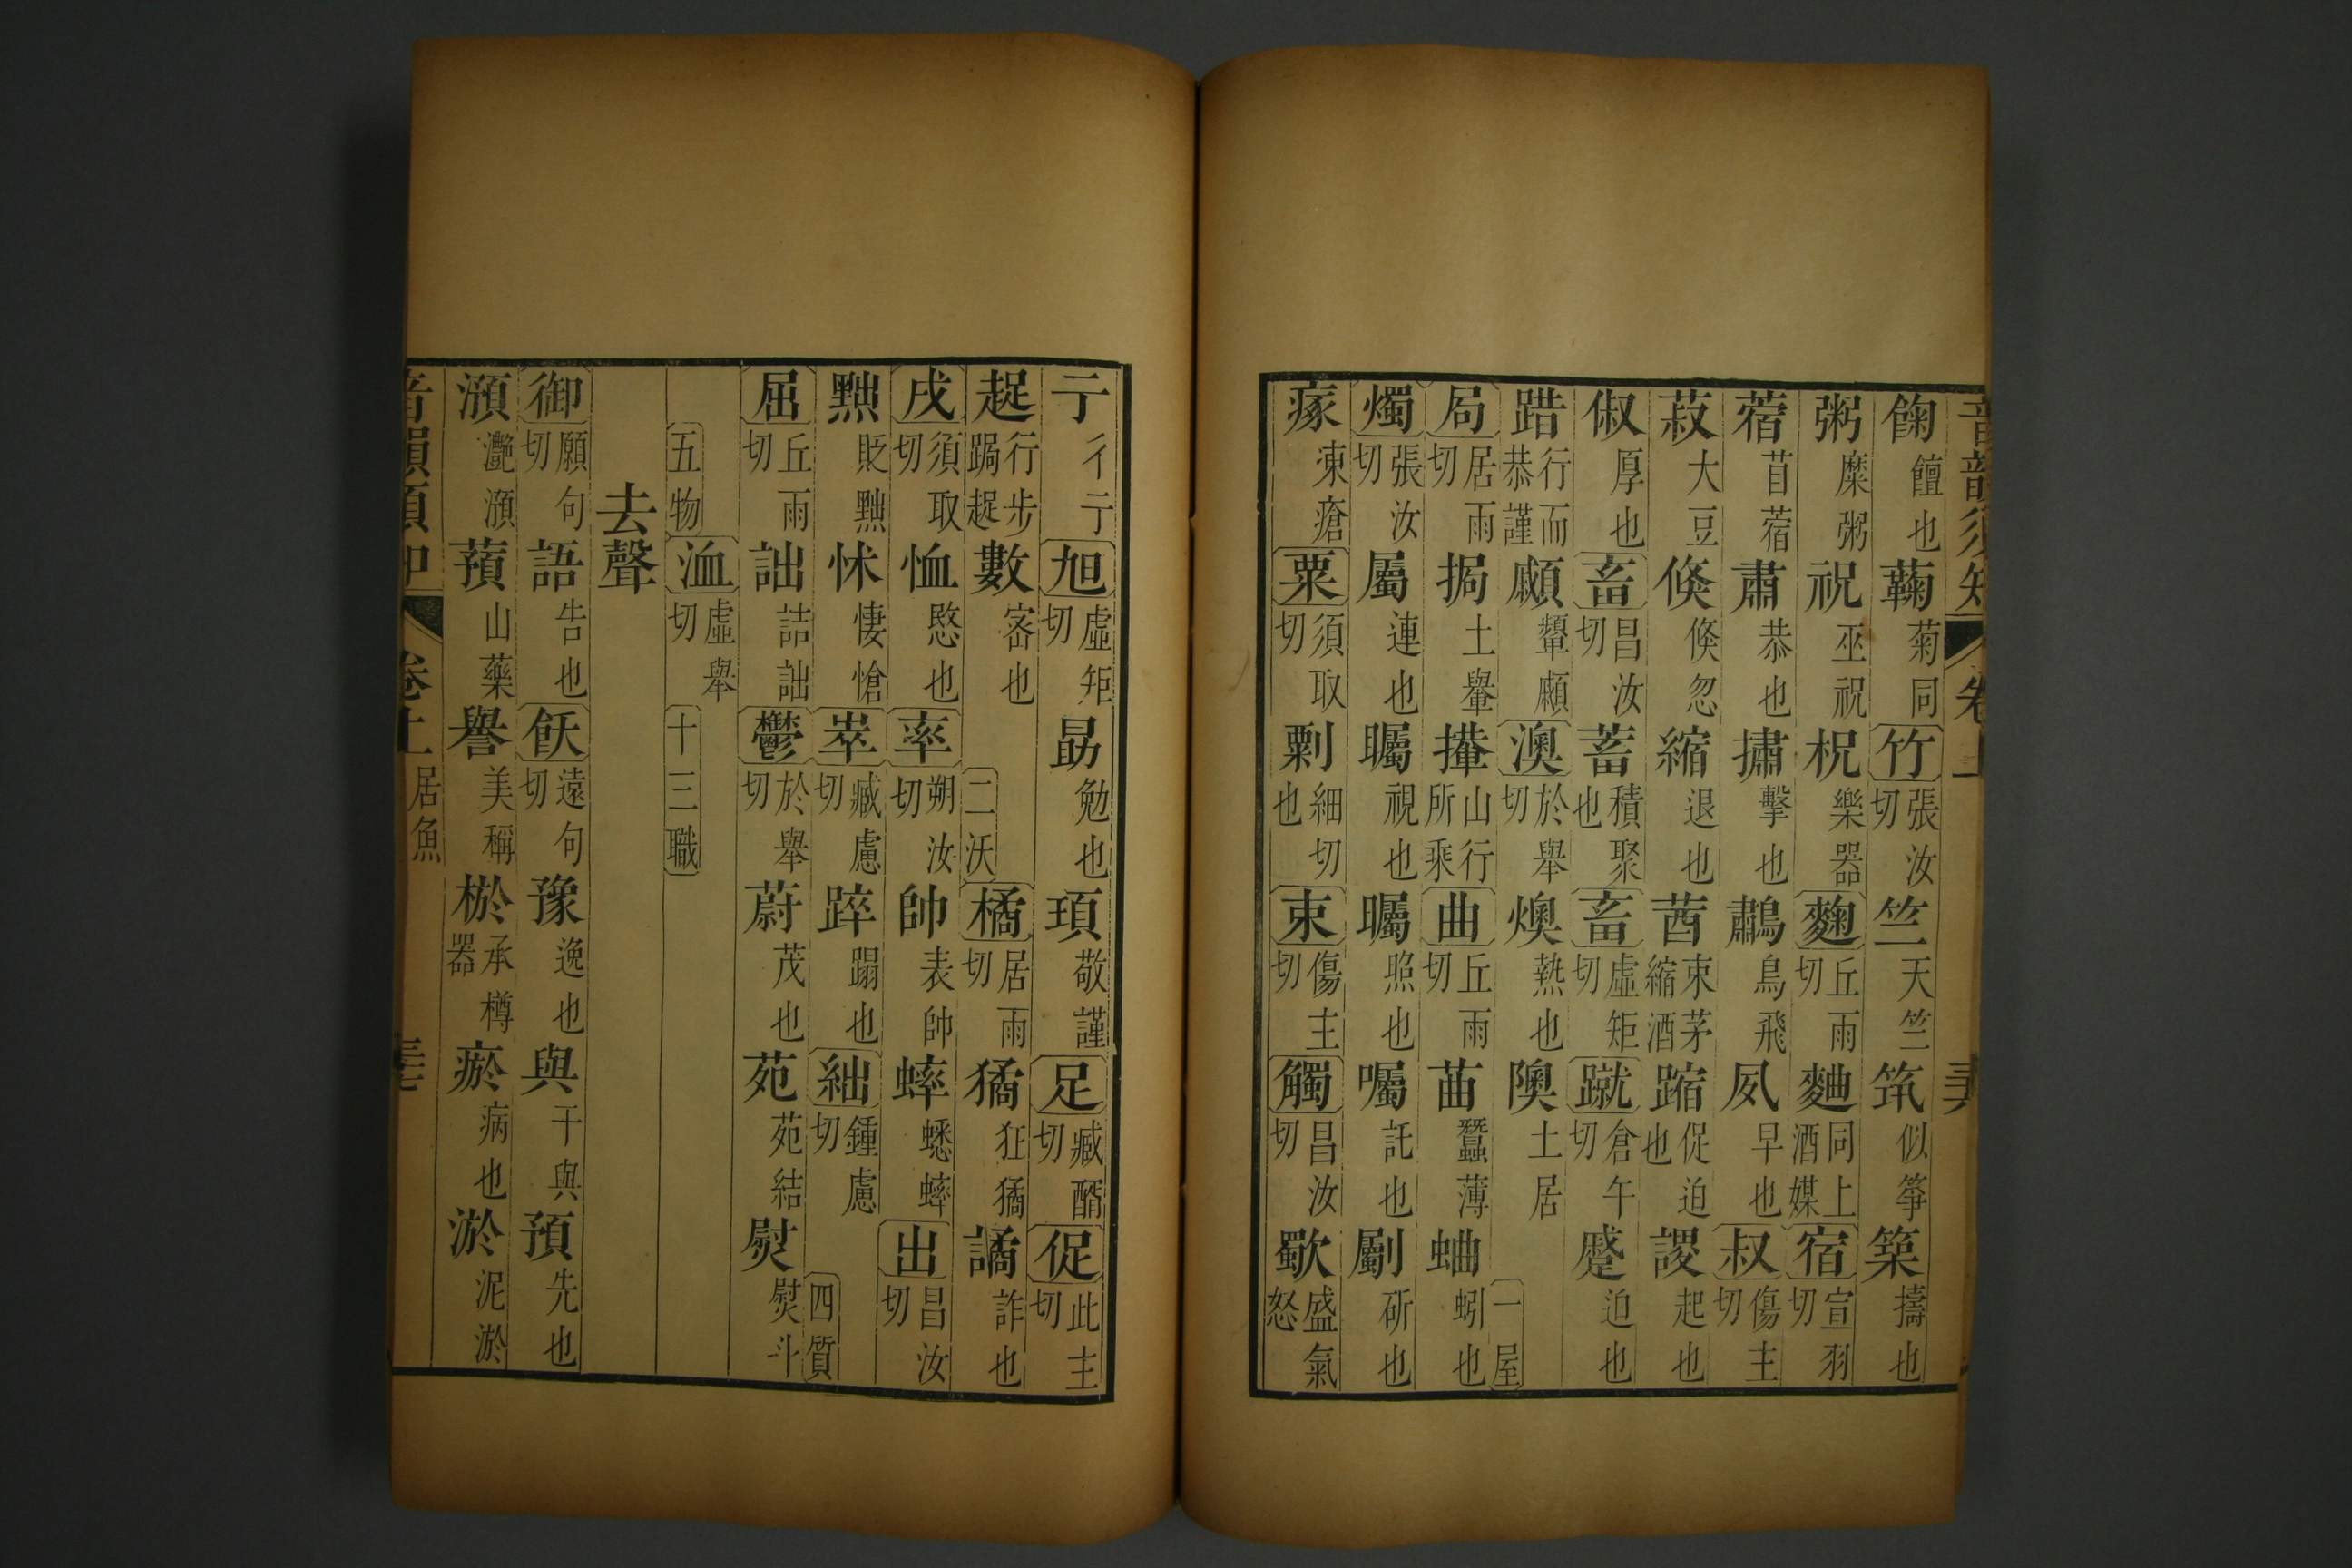 音韻須知 卷上
䬰饘也鞠菊同竹張汝切竺天竺筑似箏築擣也
粥糜粥祝巫祝柷樂器麴丘雨切麯同上酒媒宿宣羽切
蓿苜蓿肅恭也㩋擊也鷫鳥飛夙早也叔傷主切
菽大豆倏倏忽縮退也茜束茅縮酒蹜促迫也謖起也
俶厚也畜昌汝切蓄積聚也畜虛矩切蹴倉午切蹙迫也
踖行而恭謹顣顰顣澳於舉切燠熱也隩土居一屋
局居雨切挶土轝㩊山行所乘曲丘雨切苗蠶薄蛐蚓也
燭張汝切屬連也矚視也曯照也囑託也斸斫也
瘃凍瘡粟須取切剿細切也束傷主切觸昌汝切歜盛氣怒
亍彳亍旭虛矩切勗勉也頊敬謹足臧醑切促此主切
趗行步跼趗數宻也二沃橘居雨切獝狂獝譎詐也
戌須取切恤愍也率朔汝切帥表帥蟀蟋蟀出昌汝切
黜貶黜怵悽愴崒臧慮切踤蹋也絀鍾慮切四質
屈丘雨切詘詰詘鬱於舉切蔚茂也苑苑結熨熨斗
五物洫虛舉切十三職
去聲
御願句切語告也飫遠句切豫逸也與干與預先也
澦灧澦蕷山藥譽美稱棜承樽器瘀病也淤泥淤
卷上 居魚